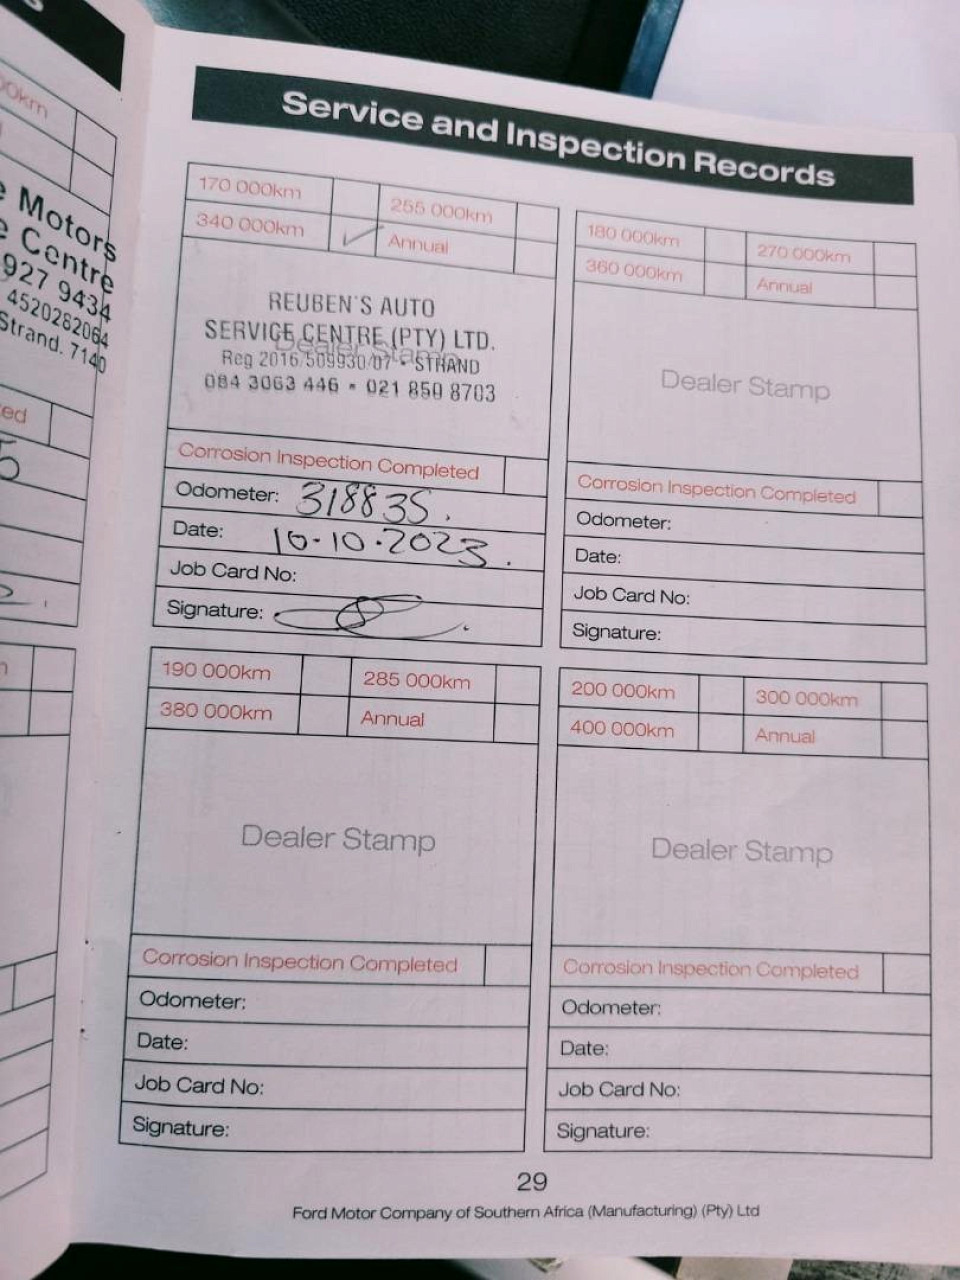 0km
Motors
Centre
927 9434
4520282064
Strand. 7140
ed
5
Service and Inspection Records
170 000km 255 000km
340 000km ✓ Annual
REUBEN'S AUTO
SERVICE CENTRE (PTY) LTD.
Dealer Stamp
Reg 2016/509930/07 • STRAND
084 3063 446 • 021 850 8703
Corrosion Inspection Completed
Odometer: 318835.
Date: 10-10.2023.
Job Card No:
Signature:
180 000km 270 000km
360 000km Annual
Dealer Stamp
Corrosion Inspection Completed
Odometer:
Date:
Job Card No:
Signature:
190 000km 285 000km
380 000km Annual
Dealer Stamp
Corrosion Inspection Completed
Odometer:
Date:
Job Card No:
Signature:
200 000km 300 000km
400 000km Annual
Dealer Stamp
Corrosion Inspection Completed
Odometer:
Date:
Job Card No:
Signature:
29
Ford Motor Company of Southern Africa (Manufacturing) (Pty) Ltd